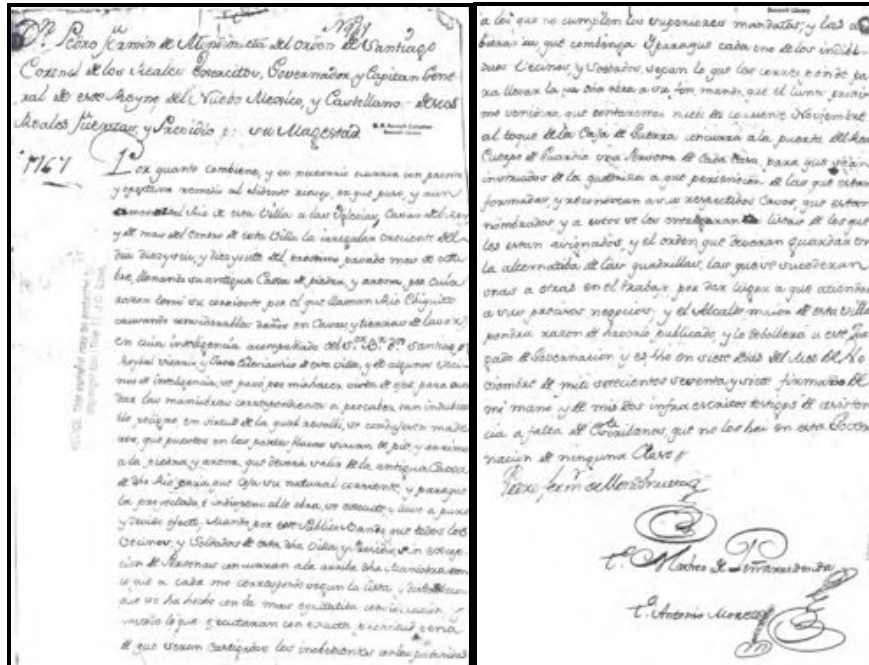 Nº 1
Dn. Pedro Fermin de Mendinueta del orden de Santiago
Coronel de los Reales Exercitos, Governador, y Capitan Gene
ral de este Reyno del Nuebo Mexico, y Castellano de sus
Reales fuerzas, y Presidio por su Magestad
1767
Por quanto combiene, y es necesario
y remedio al riesgo, en que puso, y aun
el Rio de esta Villa a las Yglesias, Casas del Rey
y de mas del Centro de esta Villa la irregular creciente del
dia diezyseis, y diezysiete del proximo pasado mes de octu
bre, llenando su antigua Caxa de piedra, y arena, por cuia
razon tomó su corriente por el que llaman Rio Chiquito
causando considerables daños en Casas, y tierras de labor,
en cuia inteligencia acompañado del Sr. Br. Dn. Santiago
Roybal Vicario y Juez Eclesiastico de esta Villa, y de algunos Veci
nos de inteligencia, se pasó por mi a hacer vista de ojos para
dar las maniobras correspondientes a precaber tan indubita
ble peligro, en virtud de la qual resolbi, se condujeran made
ras, que puestas en las partes sirvan de pie, y arrimo
a la piedra, y arena, que deverá salir de la antigua Caxa
de dho Rio para que coja su natural corriente, y para que
la proyectada, e indispensable obra, se execute, y lleve a puro
y devido efecto, Mando por este Publico Bando, que todos los
Vecinos, y Soldados de esta dha Villa, y Presidio, sin excep
cion de Personas concurran a la arriba dha Maniobra
lo que a cada uno corresponde segun la lista,
que se ha hecho con la mas equitatiba consideracion, y
lo que executaran con exacta puntualidad pena
de que seran castigados los inobedientes con las prevenidas
a los que no cumplen los superiores mandatos, y las
que combenga. Y para que cada uno de los indibi
duos Vecinos, y Soldados, sepan lo que les corresponde pa
ra llevar la dha obra a su fin, mando, que el lunes proxi
mo venidero, que contaremos nuebe de corriente Noviembre
al toque de la Caja de Guerra concurra a la puerta del Real
Cuerpo de Guardia una Persona de Cada Casa, para que sean
instruidos de la quadrilla a que pertenecen de las que estan
formadas, y reconozcan a sus respectibos Cavos, que estan
nombrados y a estos se les entregaran listas de los que
les estan asignados, y el orden que deveran guardar en
la alternatiba de las quadrillas, las que se sucederan
unas a otras en el trabajo, por dar lugar a que atiendan
a sus precisos negocios, y el Alcalde maior de esta Villa
pondra razon de haverlo publicado, y lo debolberá a este Juz
gado de Governacion y es fho en siete dias del Mes de No
viembre de mil setecientos sesenta y siete firmado de
mi mano y de mis dos infra escritos testigos de asisten
cia a falta de Escribanos, que no los hai en esta Gover
nacion de ninguna Clase //
Pedro Fermn. de Mendinueta
to. Matheo de Peñarredonda
to. Antonio Moreto